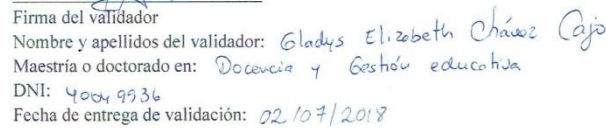 Firma del validador
Nombre y apellidos del validador: Gladys Elizabeth Chávez Cajo
Maestría o doctorado en: Docencia y Gestión educativa
DNI: 40049936
Fecha de entrega de validación: 02/07/2018